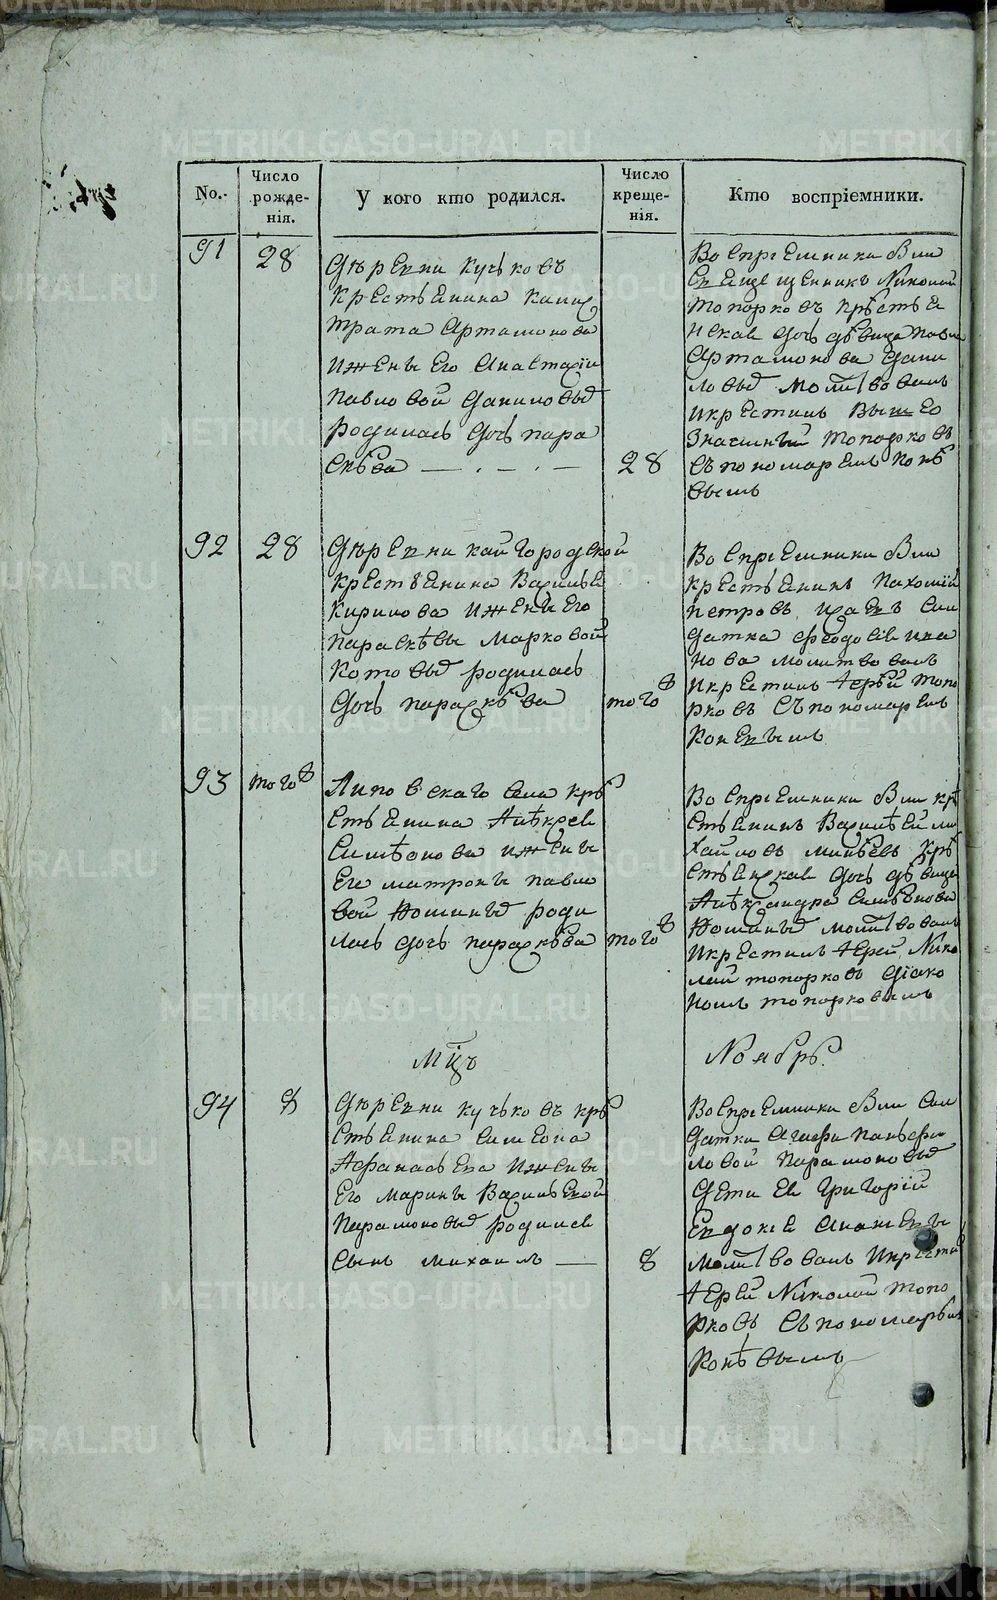 No.-
Число рожде- нія.
У кого кто родился.
Число креще- нія.
Кто воспріемники.
91
28
Дѣревни кучковъ
крестьянина калис
трата Артамонова
иженыего Анастасіи
павловой Даниловыд
родилась дочь пара
скѣва
28
Воспріемники были
священникъ Николай
топорковъ крѣстья
нская дочь дѣвица
Артамонова Дани
ловыд молитвовалъ
икрестилъ выше
значиный топорковъ
съпономаремъ конѣ
вымъ
92
28
Дѣревни кайгородской
крестьянина Василья
Кирилова иженыего
параскѣвы марковой
котовыд родилась
дочь параскѣва
того
Воспріемники были
крестьянинъ пахомій
петровъ исаевъ сол
датка феодосія ива
нова молитвовалъ
икрестилъ іерѣй топо
рковъ съпономаремъ
коневымъ
93
того
Липовскаго села крѣ
стьянина Алѣксея
Симѣонова ижены
его матроны павло
вой роди
лась дочь параскѣва
того
Воспріемники были крѣ
стьянинъ Василѣй ми
хайловъ минѣевъ крѣ
стьянская дочь дѣвица
Алѣксандра Симѣонова
молитвовалъ
икрестилъ іерей Нико
лай топорковъ діако
номъ топорковымъ
Мцъ
Ноябрь.
94
8
Дѣревни кучковъ крѣ
стьянина симеона
Афанасьева ижены
его марины Васильевой
парамоновыд родился
сынъ михаилъ
8
Воспріемники были сол
датки панфи
ловой парамоновыд
дети ея григорій
евдокіе
молитвовалъ икрести
іерей Николай топо
рковъ съпономарѣмъ
конѣвымъ
METRIKI.GASO-URAL.RU